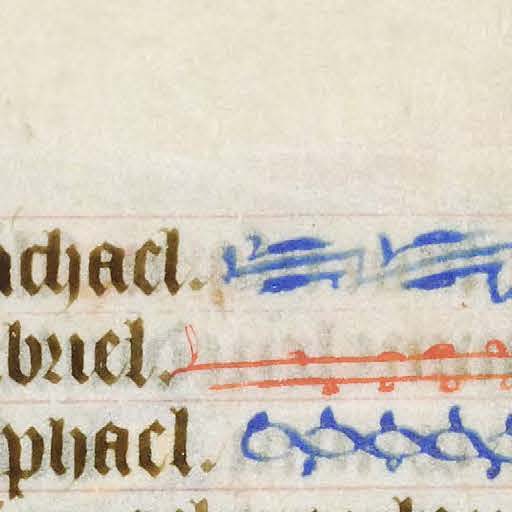 chael.
briel.
phael.